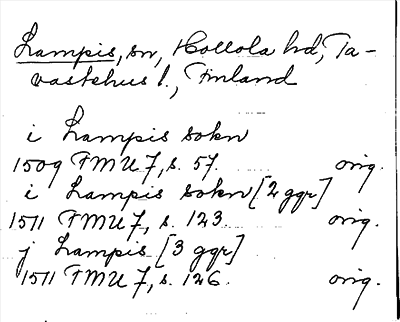 Lampis, sn, Hollola hd, Ta-
vastehus l., Finland
i Lampis sokn
1509 FMU 7, s. 57. orig.
i Lampis sokn [2 ggr]
1511 FMU 7, s. 123. orig.
j Lampis [3 ggr]
1511 FMU 7, s. 126. orig.